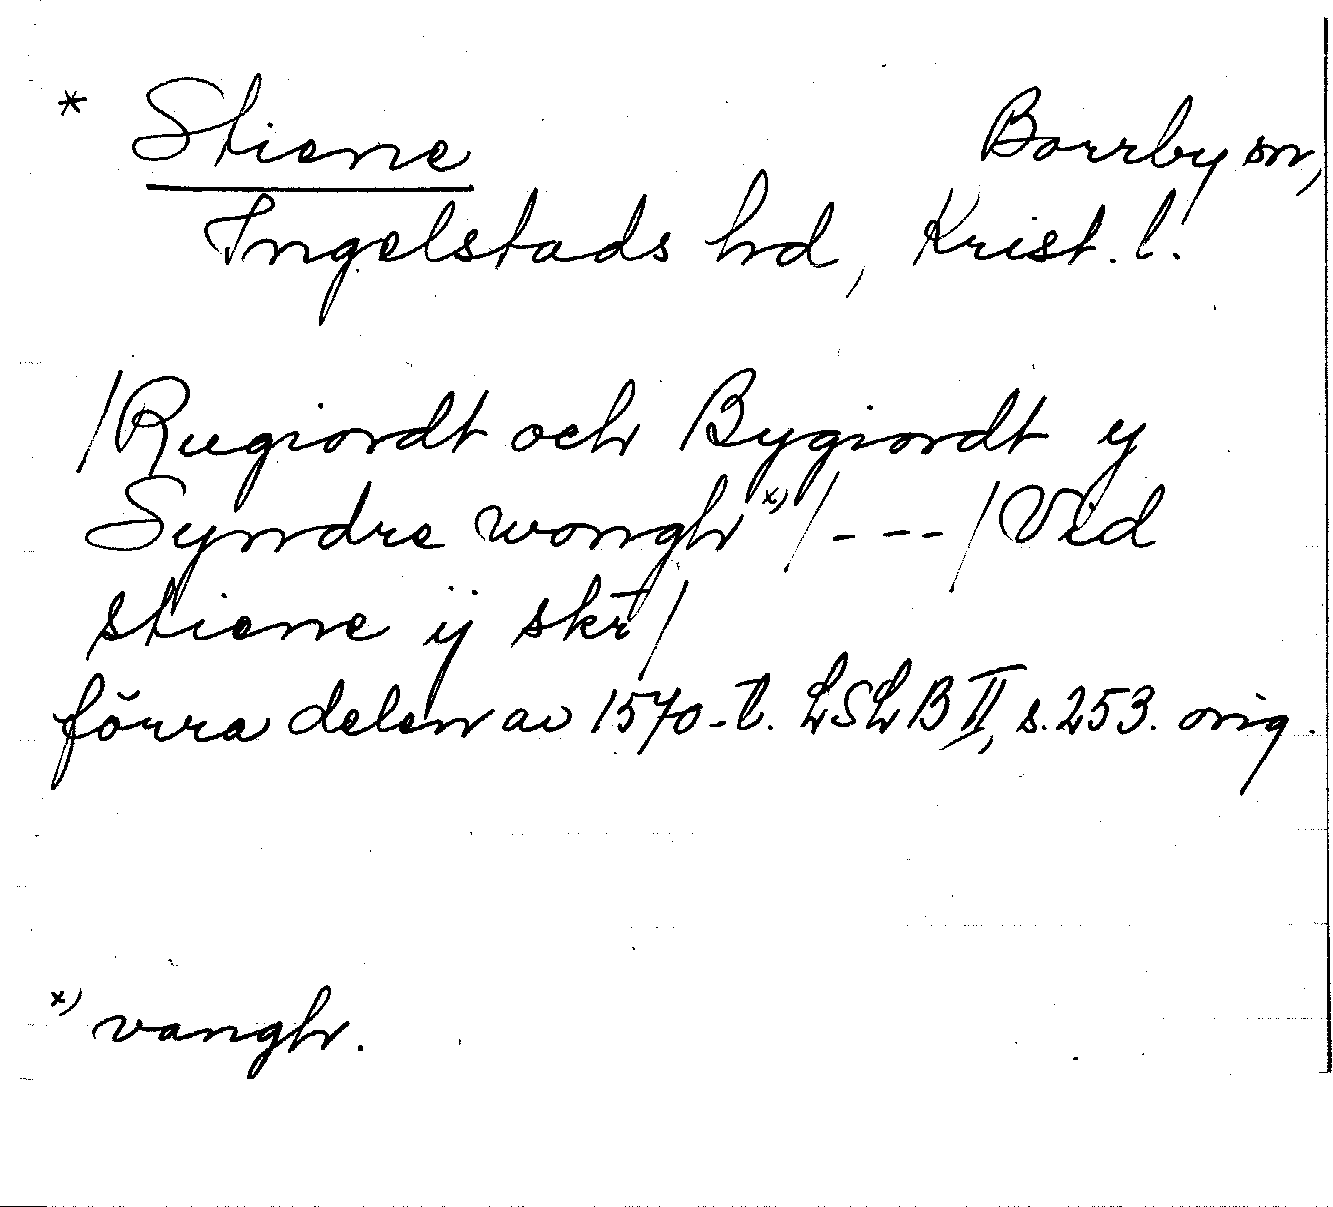 * Stiene Borrby sn,
Ingelstads hd, Krist. l.
/Rugiordt och Bygiordt y
Syndre wongh x) / - - - / Ved
stiene ij skr /
förra delen av 1570-t. LSLB II, s. 253. orig.
x) vangh.